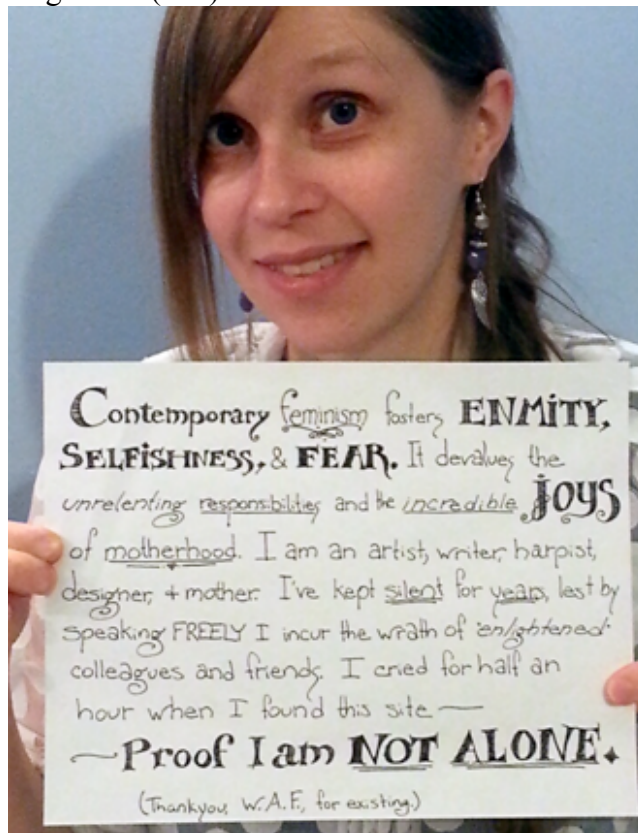 Contemporary feminism fosters ENMITY,
SELFISHNESS, & FEAR. It devalues the
unrelenting responsibilities and the incredible JOYS
of motherhood. I am an artist, writer, harpist,
designer, + mother. I've kept silent for years, lest by
speaking FREELY I incur the wrath of "enlightened"
colleagues and friends. I cried for half an
hour when I found this site —
— Proof I am NOT ALONE.
(Thankyou, W.A.F., for existing.)